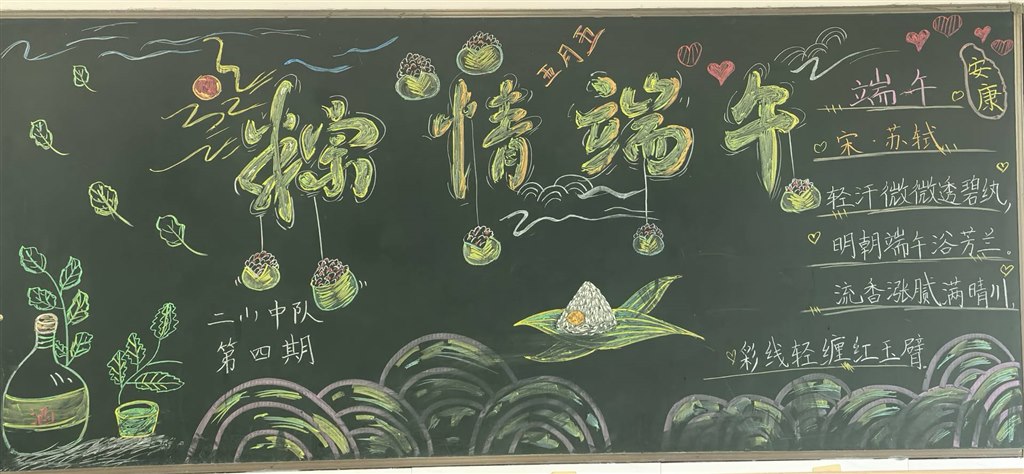 粽情端午
五月节
二小中队
第四期
端午
安康
宋·苏轼
轻汗微微透碧纨,
明朝端午浴芳兰。
流香涨腻满晴川,
彩线轻缠红玉臂